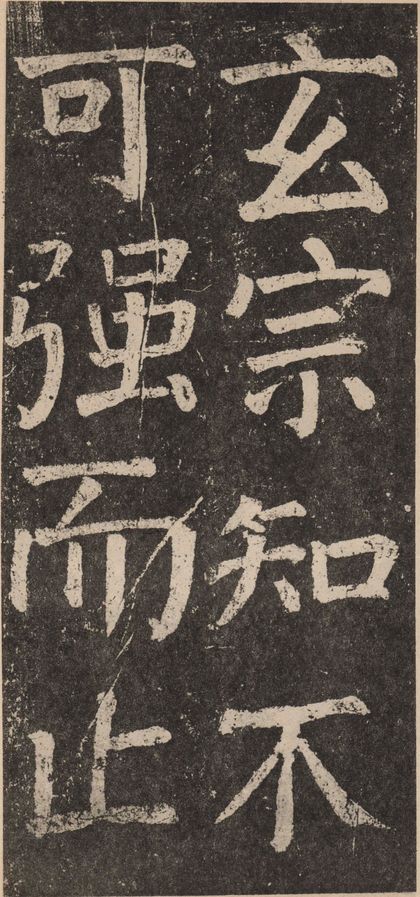 玄宗知不
可强而止